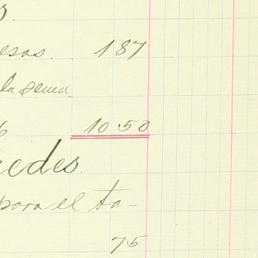 esas. 187
la semn
10.50
edes.
para el ta-
75